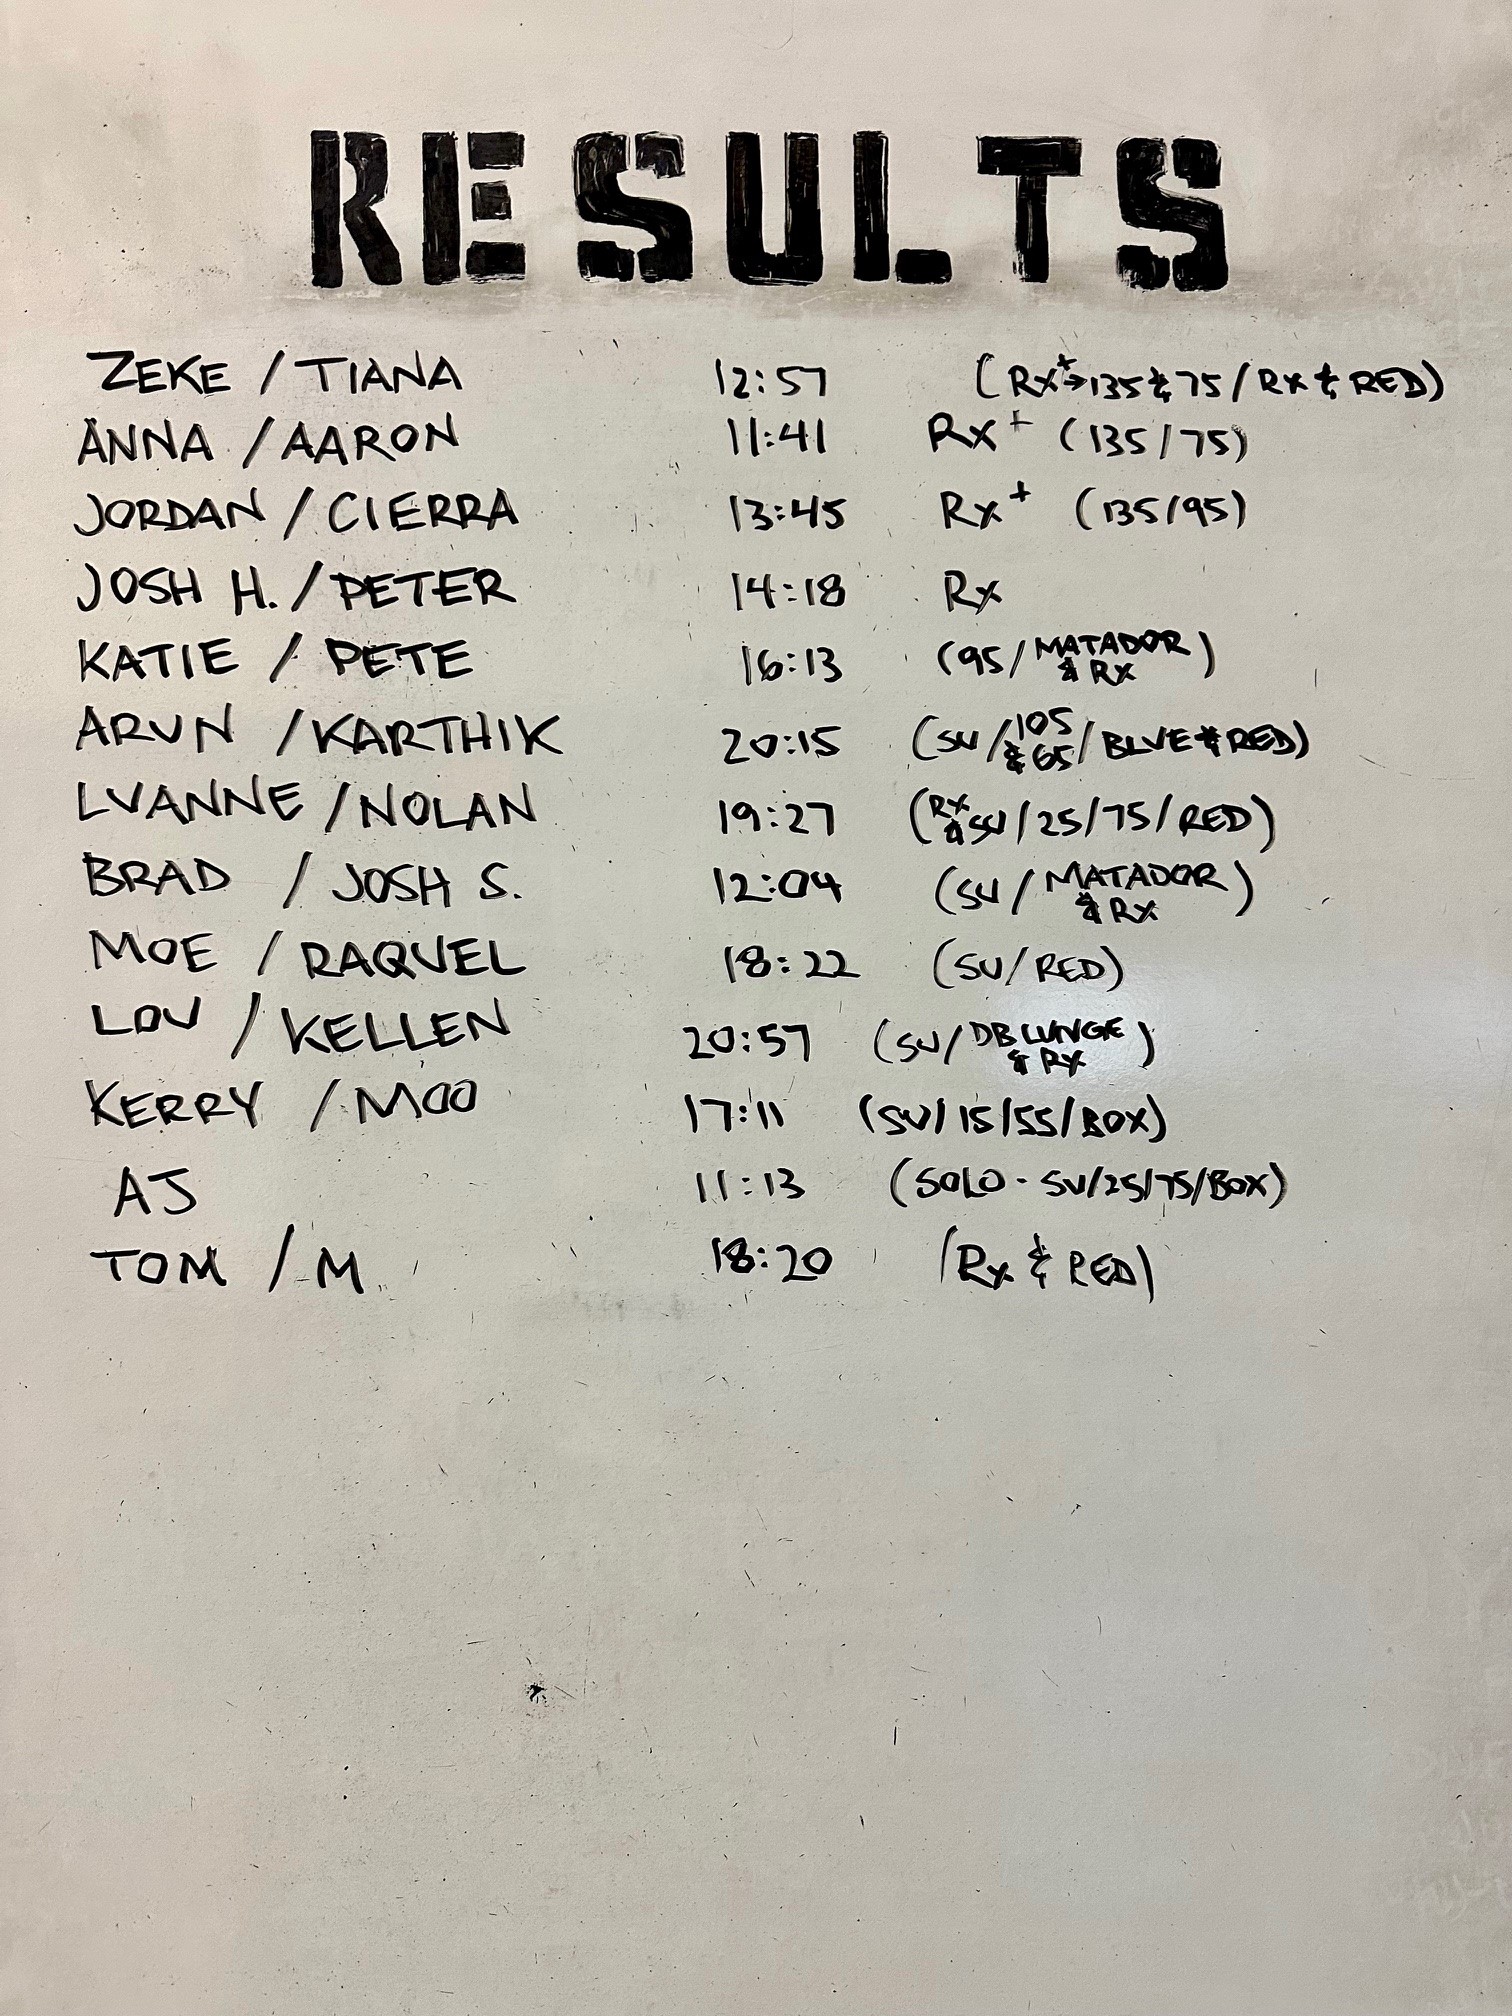 RESULTS
ZEKE / TIANA 12:57 (Rx+→135 & 75 / Rx & RED)
ÄNNA / AARON 11:41 Rx+ (135/75)
JORDAN / CIERRA 13:45 Rx+ (135/95)
JOSH H. / PETER 14:18 Rx
KATIE / PETE 16:13 (95/ MATADOR & Rx)
ARUN / KARTHIK 20:15 (SU / 105 & 65 / BLUE & RED)
LUANNE / NOLAN 19:27 (Rx & SU / 25 / 75 / RED)
BRAD / JOSH S. 12:04 (SU / MATADOR & Rx)
MOE / RAQUEL 18:22 (SU/RED)
LOU / KELLEN 20:57 (SU/ DB LUNGE & Rx)
KERRY / MOO 17:11 (SU/15/55/BOX)
AJ 11:13 (SOLO - SU/25/75/BOX)
TOM / M 18:20 (Rx & RED)